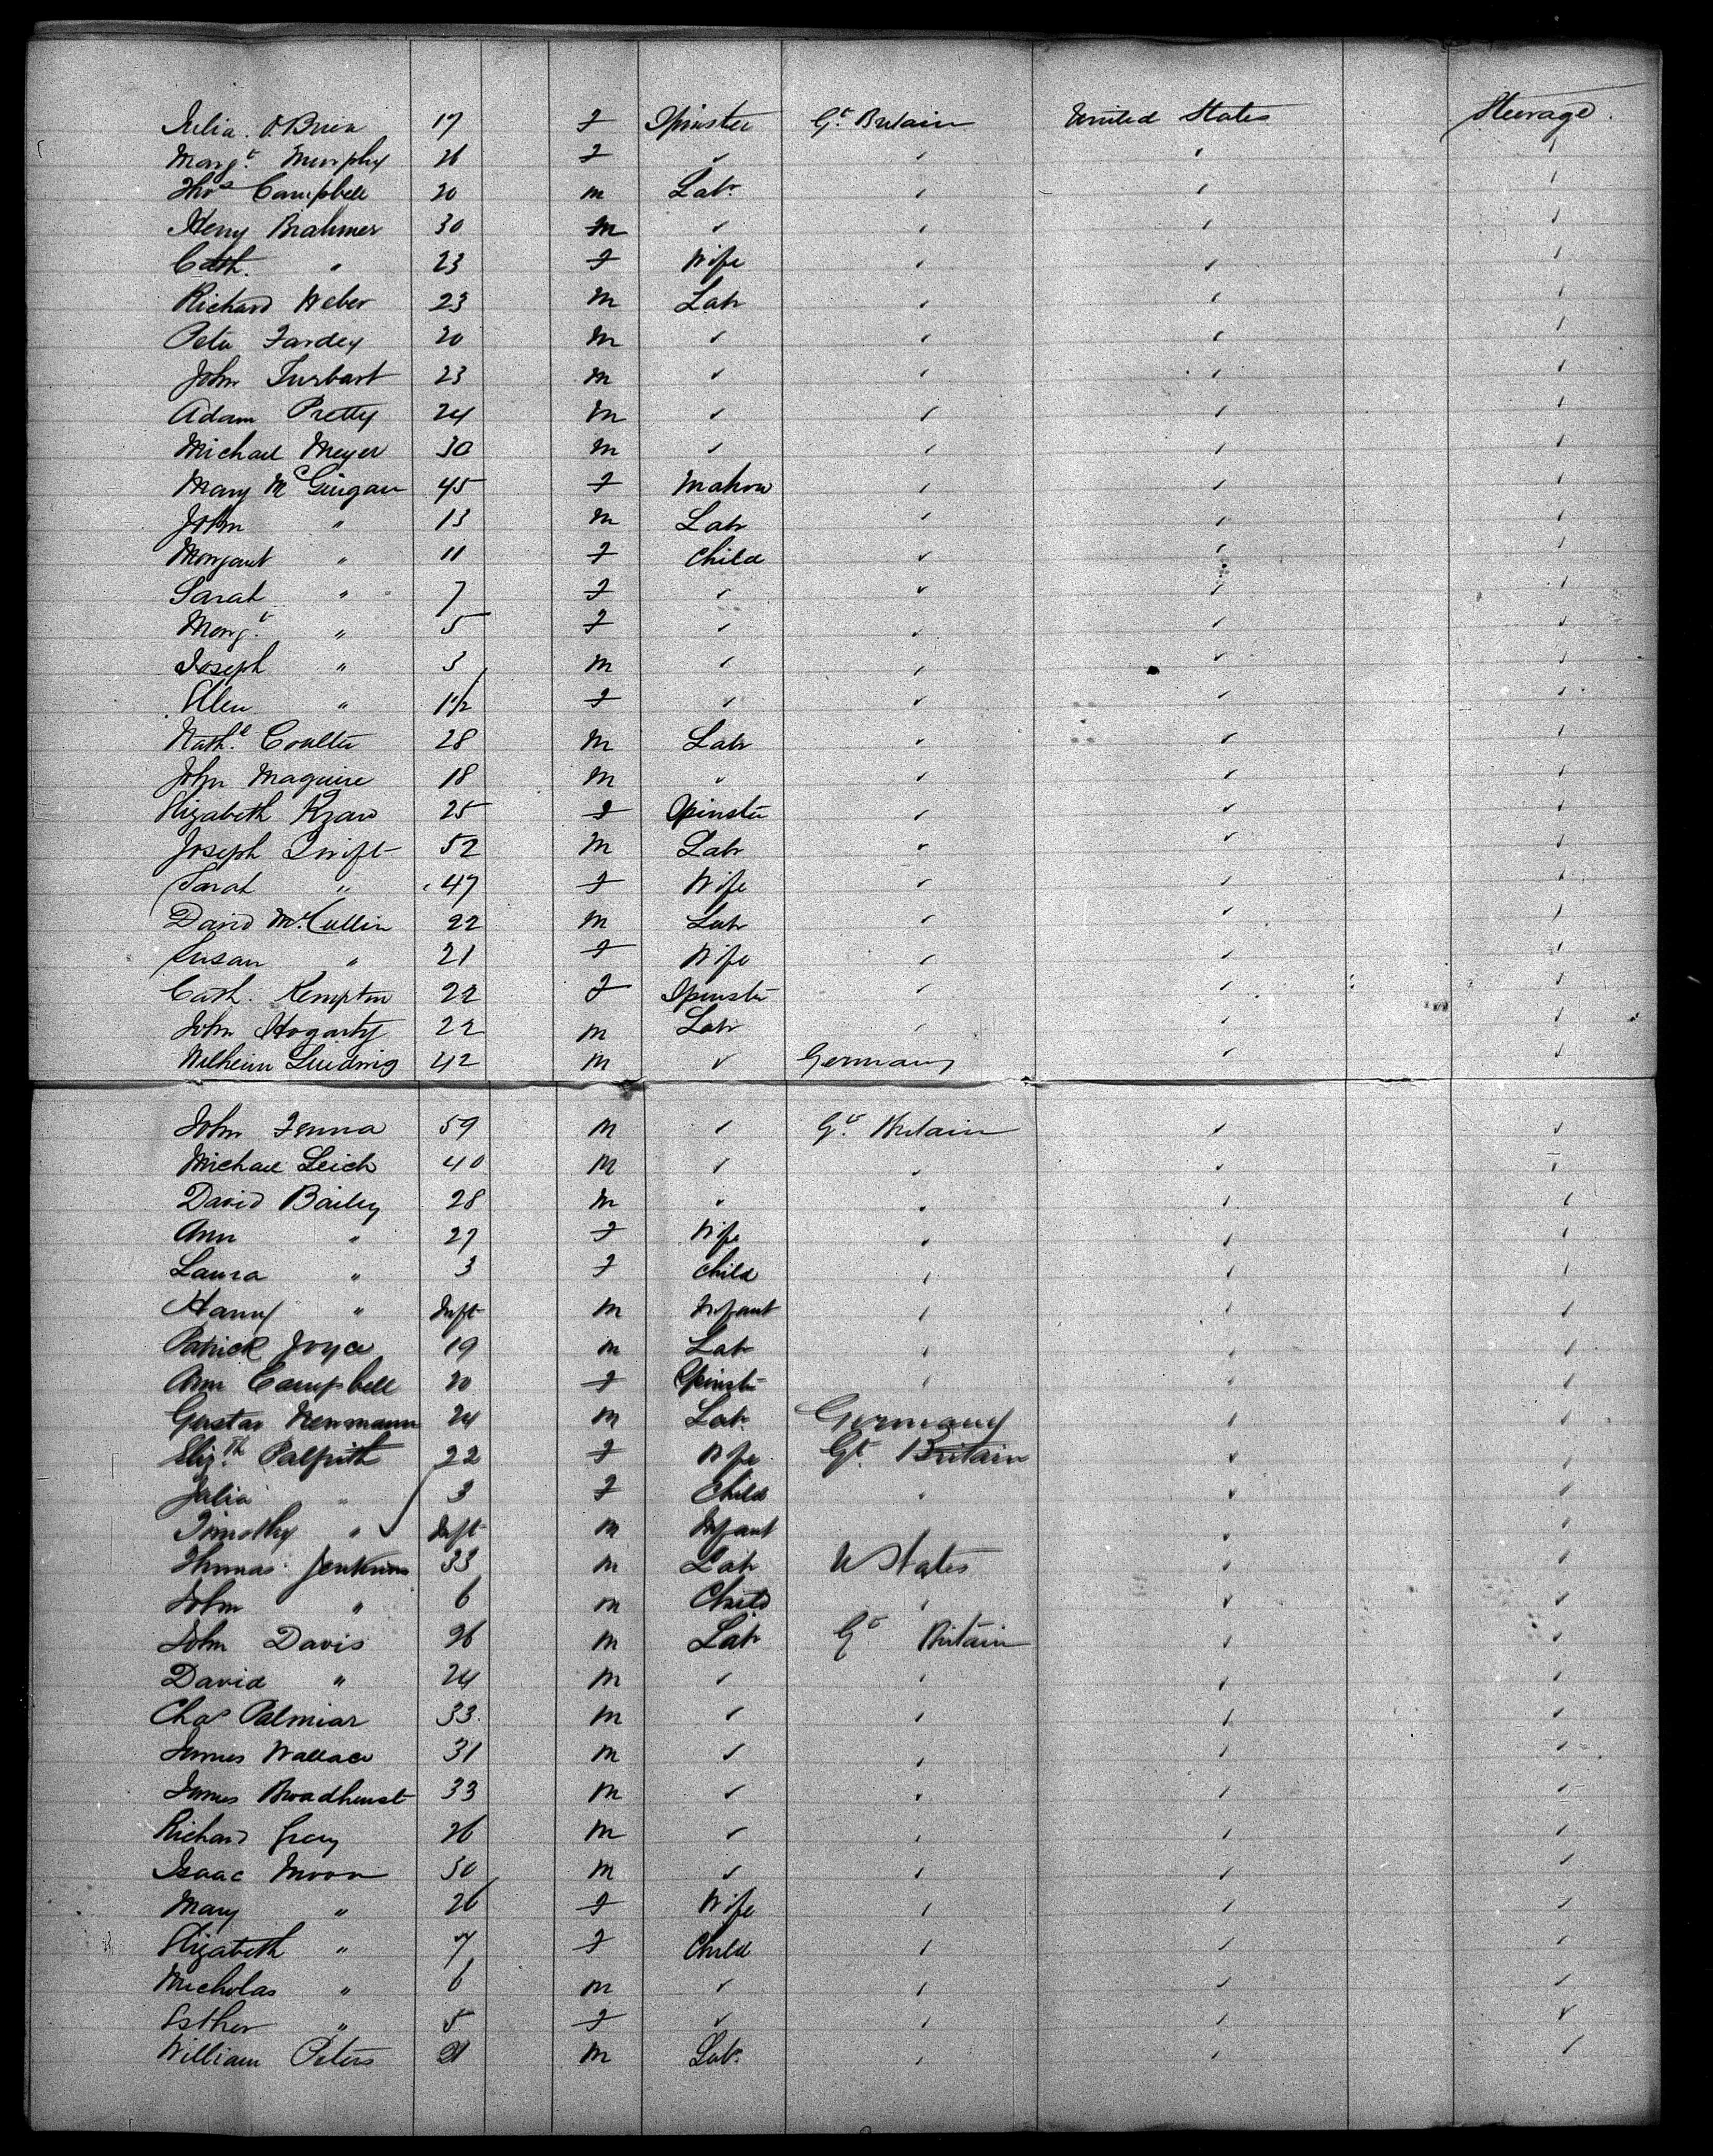 Julia O'Brien 17 F Spinster Gt. Britain United States Steerage
Margt. Murphy 26 F ✓ ✓ ✓ ✓
Thos Campbell 20 m Labr ✓ ✓ ✓
Henry Brahmer 30 m ✓ ✓ ✓ ✓
Cath. " 23 F Wife ✓ ✓ ✓
Richard Weber 23 m Labr ✓ ✓ ✓
Peter Fardey 20 m ✓ ✓ ✓ ✓
John Turbart 23 m ✓ ✓ ✓ ✓
Adam Pretty 24 m ✓ ✓ ✓ ✓
Michael Meyer 30 m ✓ ✓ ✓ ✓
Mary McGuigan 45 F Matron ✓ ✓ ✓
John " 13 m Labr ✓ ✓ ✓
Margaret " 11 F Child ✓ ✓ ✓
Sarah " 7 F ✓ ✓ ✓ ✓
Margt. " 5 F ✓ ✓ ✓ ✓
Joseph " 3 m ✓ ✓ ✓ ✓
Ellen " 1 1/2 F ✓ ✓ ✓ ✓
Nathl. Coulter 28 m Labr ✓ ✓ ✓
John Maguire 18 m ✓ ✓ ✓ ✓
Elizabeth 25 F Spinster ✓ ✓ ✓
Joseph Swift 52 m Labr ✓ ✓ ✓
Sarah " 47 F Wife ✓ ✓ ✓
David McCullin 22 m Labr ✓ ✓ ✓
Susan " 21 F Wife ✓ ✓ ✓
Cath. Kempton 22 F Spinster ✓ ✓ ✓
John Hogarty 22 m Labr ✓ ✓ ✓
Wilheim Luidwig 42 m ✓ Germany ✓ ✓
John Fenna 59 m ✓ Gt. Britain ✓ ✓
Michael Leich 40 m ✓ ✓ ✓ ✓
David Bailey 28 m ✓ ✓ ✓ ✓
Ann " 27 F Wife ✓ ✓ ✓
Laura " 3 F Child ✓ ✓ ✓
Harry " Inft m Infant ✓ ✓ ✓
Patrick Joyce 19 m Labr ✓ ✓ ✓
Ann Campbell 20 F Spinster ✓ ✓ ✓
Gustav Newmann 24 m Labr Germany ✓ ✓
Elizth. Palfrith 22 F Wife Gt. Britain ✓ ✓
Julia " 3 F Child ✓ ✓ ✓
Timothy " Inft m Infant ✓ ✓ ✓
Thomas Jenkins 33 m Labr U States ✓ ✓
John " 6 m Child ✓ ✓ ✓
John Davis 26 m Labr Gt Britain ✓ ✓
David " 24 m ✓ ✓ ✓ ✓
Chas Palmiar 33 m ✓ ✓ ✓ ✓
James Wallace 31 m ✓ ✓ ✓ ✓
James Broadhurst 33 m ✓ ✓ ✓ ✓
Richard Gray 26 m ✓ ✓ ✓ ✓
Isaac Moon 30 m ✓ ✓ ✓ ✓
Mary " 26 F Wife ✓ ✓ ✓
Elizabeth " 7 F Child ✓ ✓ ✓
Nicholas " 6 m ✓ ✓ ✓ ✓
Esther " 5 F ✓ ✓ ✓ ✓
William Peters 21 m Labr ✓ ✓ ✓